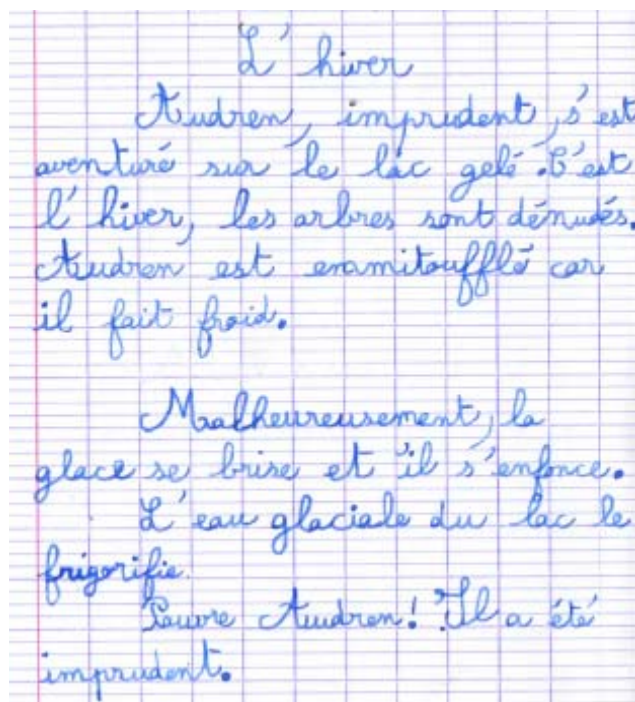 L'hiver
Audren, imprudent, s'est
aventuré sur le lac gelé. C'est
l'hiver, les arbres sont dénudés.
Audren est enmitoufflé car
il fait froid.
Malheureusement, la
glace se brise et il s'enfonce.
L'eau glaciale du lac le
frigorifie.
Pauvre Audren! Il a été
imprudent.